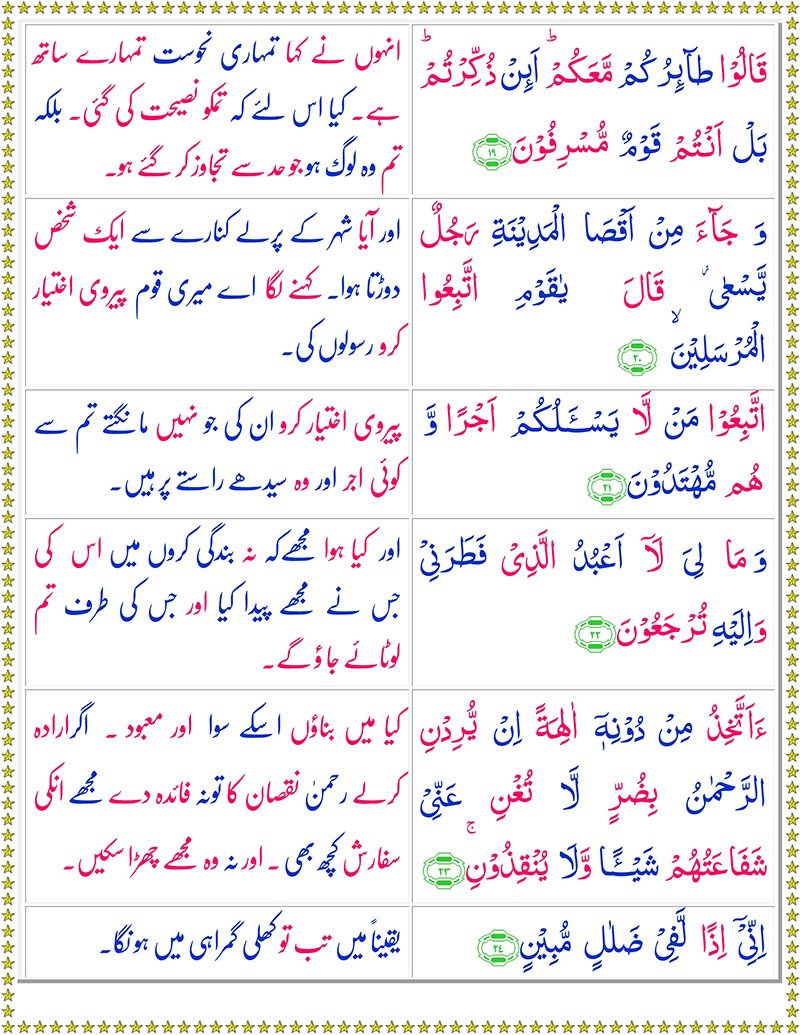 قَالُوۡا طَآئِرُكُمۡ مَّعَكُمۡ ؕ اَئِنۡ ذُكِّرۡتُمۡ ؕ
بَلۡ اَنۡتُمۡ قَوۡمٌ مُّسۡرِفُوۡنَ ﴿۱۹﴾
انہوں نے کہا تمہاری نحوست تمہارے ساتھ
ہے۔ کیا اس لئے کہ تمکو نصیحت کی گئی۔ بلکہ
تم وہ لوگ ہو جو حد سے تجاوز کر گئے ہو۔
وَ جَآءَ مِنۡ اَقۡصَا الۡمَدِيۡنَةِ رَجُلٌ
يَّسۡعٰى ۫ قَالَ يٰقَوۡمِ اتَّبِعُوا
الۡمُرۡسَلِيۡنَ ۙ ﴿۲۰﴾
اور آیا شہر کے پرلے کنارے سے ایک شخص
دوڑتا ہوا۔ کہنے لگا اے میری قوم پیروی اختیار
کرو رسولوں کی۔
اتَّبِعُوۡا مَنۡ لَّا يَسۡـَٔـلُكُمۡ اَجۡرًا وَّ
هُم مُّهۡتَدُوۡنَ ﴿۲۱﴾
پیروی اختیار کرو ان کی جو نہیں مانگتے تم سے
کوئی اجر اور وہ سیدھے راستے پر ہیں۔
وَ مَا لِىَ لَاۤ اَعۡبُدُ الَّذِىۡ فَطَرَنِىۡ
وَاِلَيۡهِ تُرۡجَعُوۡنَ ﴿۲۲﴾
اور کیا ہوا مجھے کہ نہ بندگی کروں میں اس کی
جس نے مجھے پیدا کیا اور جس کی طرف تم
لوٹائے جاؤ گے۔
ءَاَتَّخِذُ مِنۡ دُوۡنِهٖۤ اٰلِهَةً اِنۡ يُّرِدۡنِ
الرَّحۡمٰنُ بِضُرٍّ لَّا تُغۡنِ عَنِّىۡ
شَفَاعَتُهُمۡ شَيۡـًٔـا وَّلَا يُنۡقِذُوۡنِ ۚ ﴿۲۳﴾
کیا میں بناؤں اسکے سوا اور معبود ۔ اگر ارادہ
کرلے رحمنٰ نقصان کا تو نہ فائدہ دے مجھے انکی
سفارش کچھ بھی ۔ اور نہ وہ مجھے چھڑا سکیں۔
اِنِّىۡۤ اِذًا لَّفِىۡ ضَلٰلٍ مُّبِيۡنٍ ﴿۲۴﴾
یقیناً میں تب تو کھلی گمراہی میں ہونگا۔